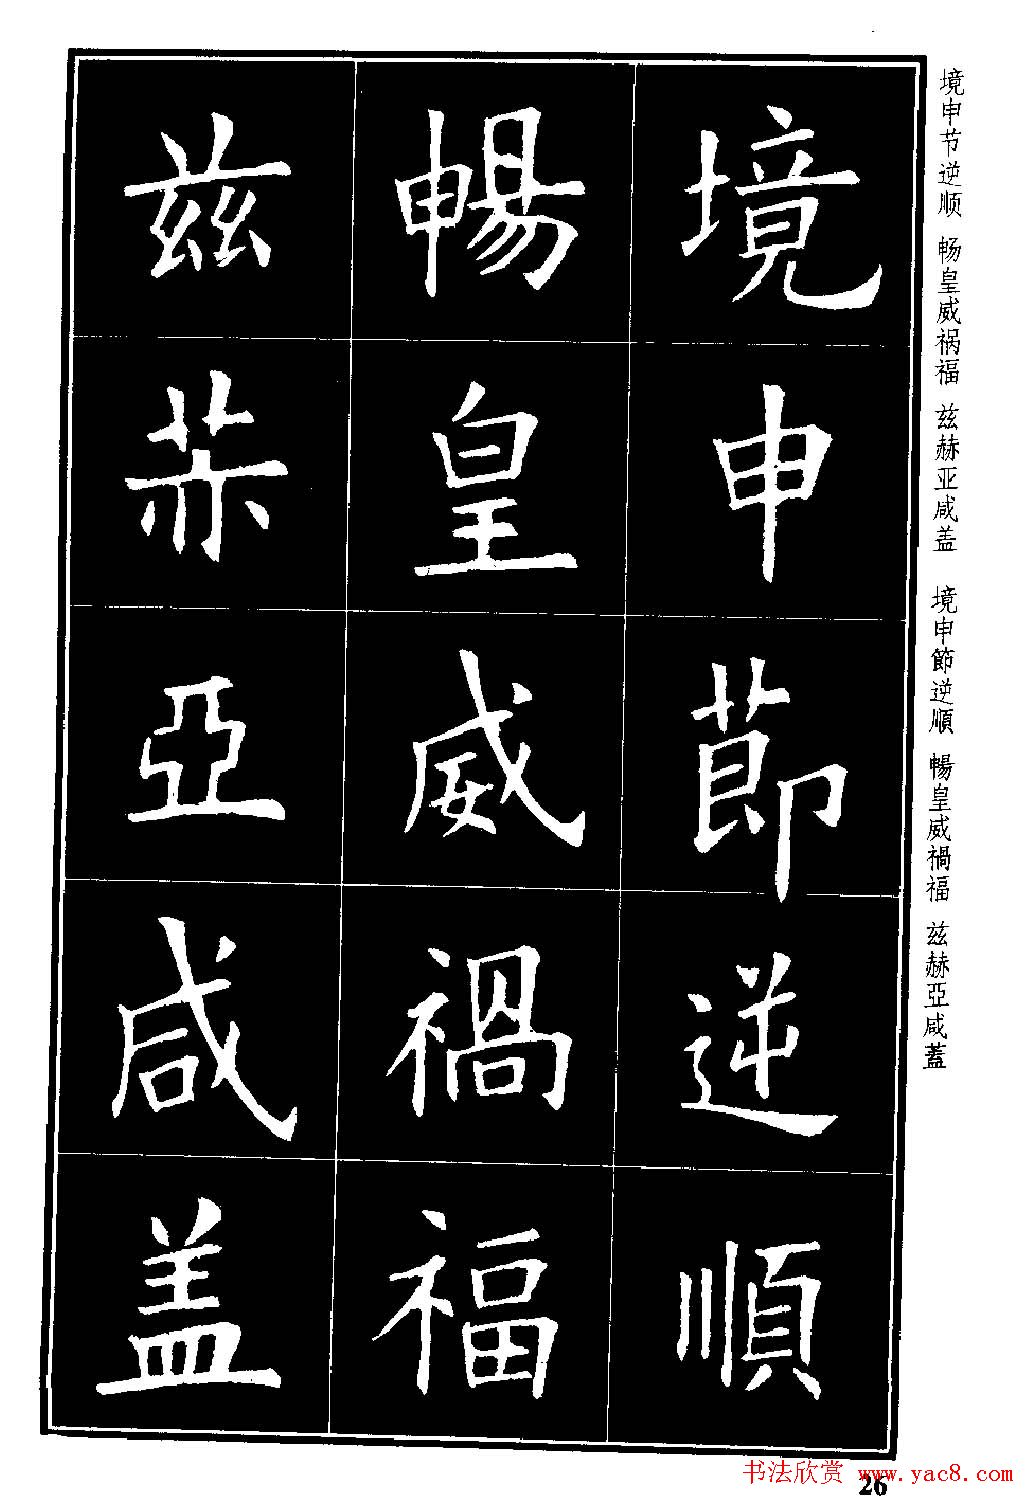 境申节逆顺 畅皇威祸福 兹赫亚咸盖 境申節逆順 暢皇威禍福 兹赫亞咸蓋
境申莭逆順
暢皇威禍福
兹赫亞咸盖
26
书法欣赏 www.yac8.com